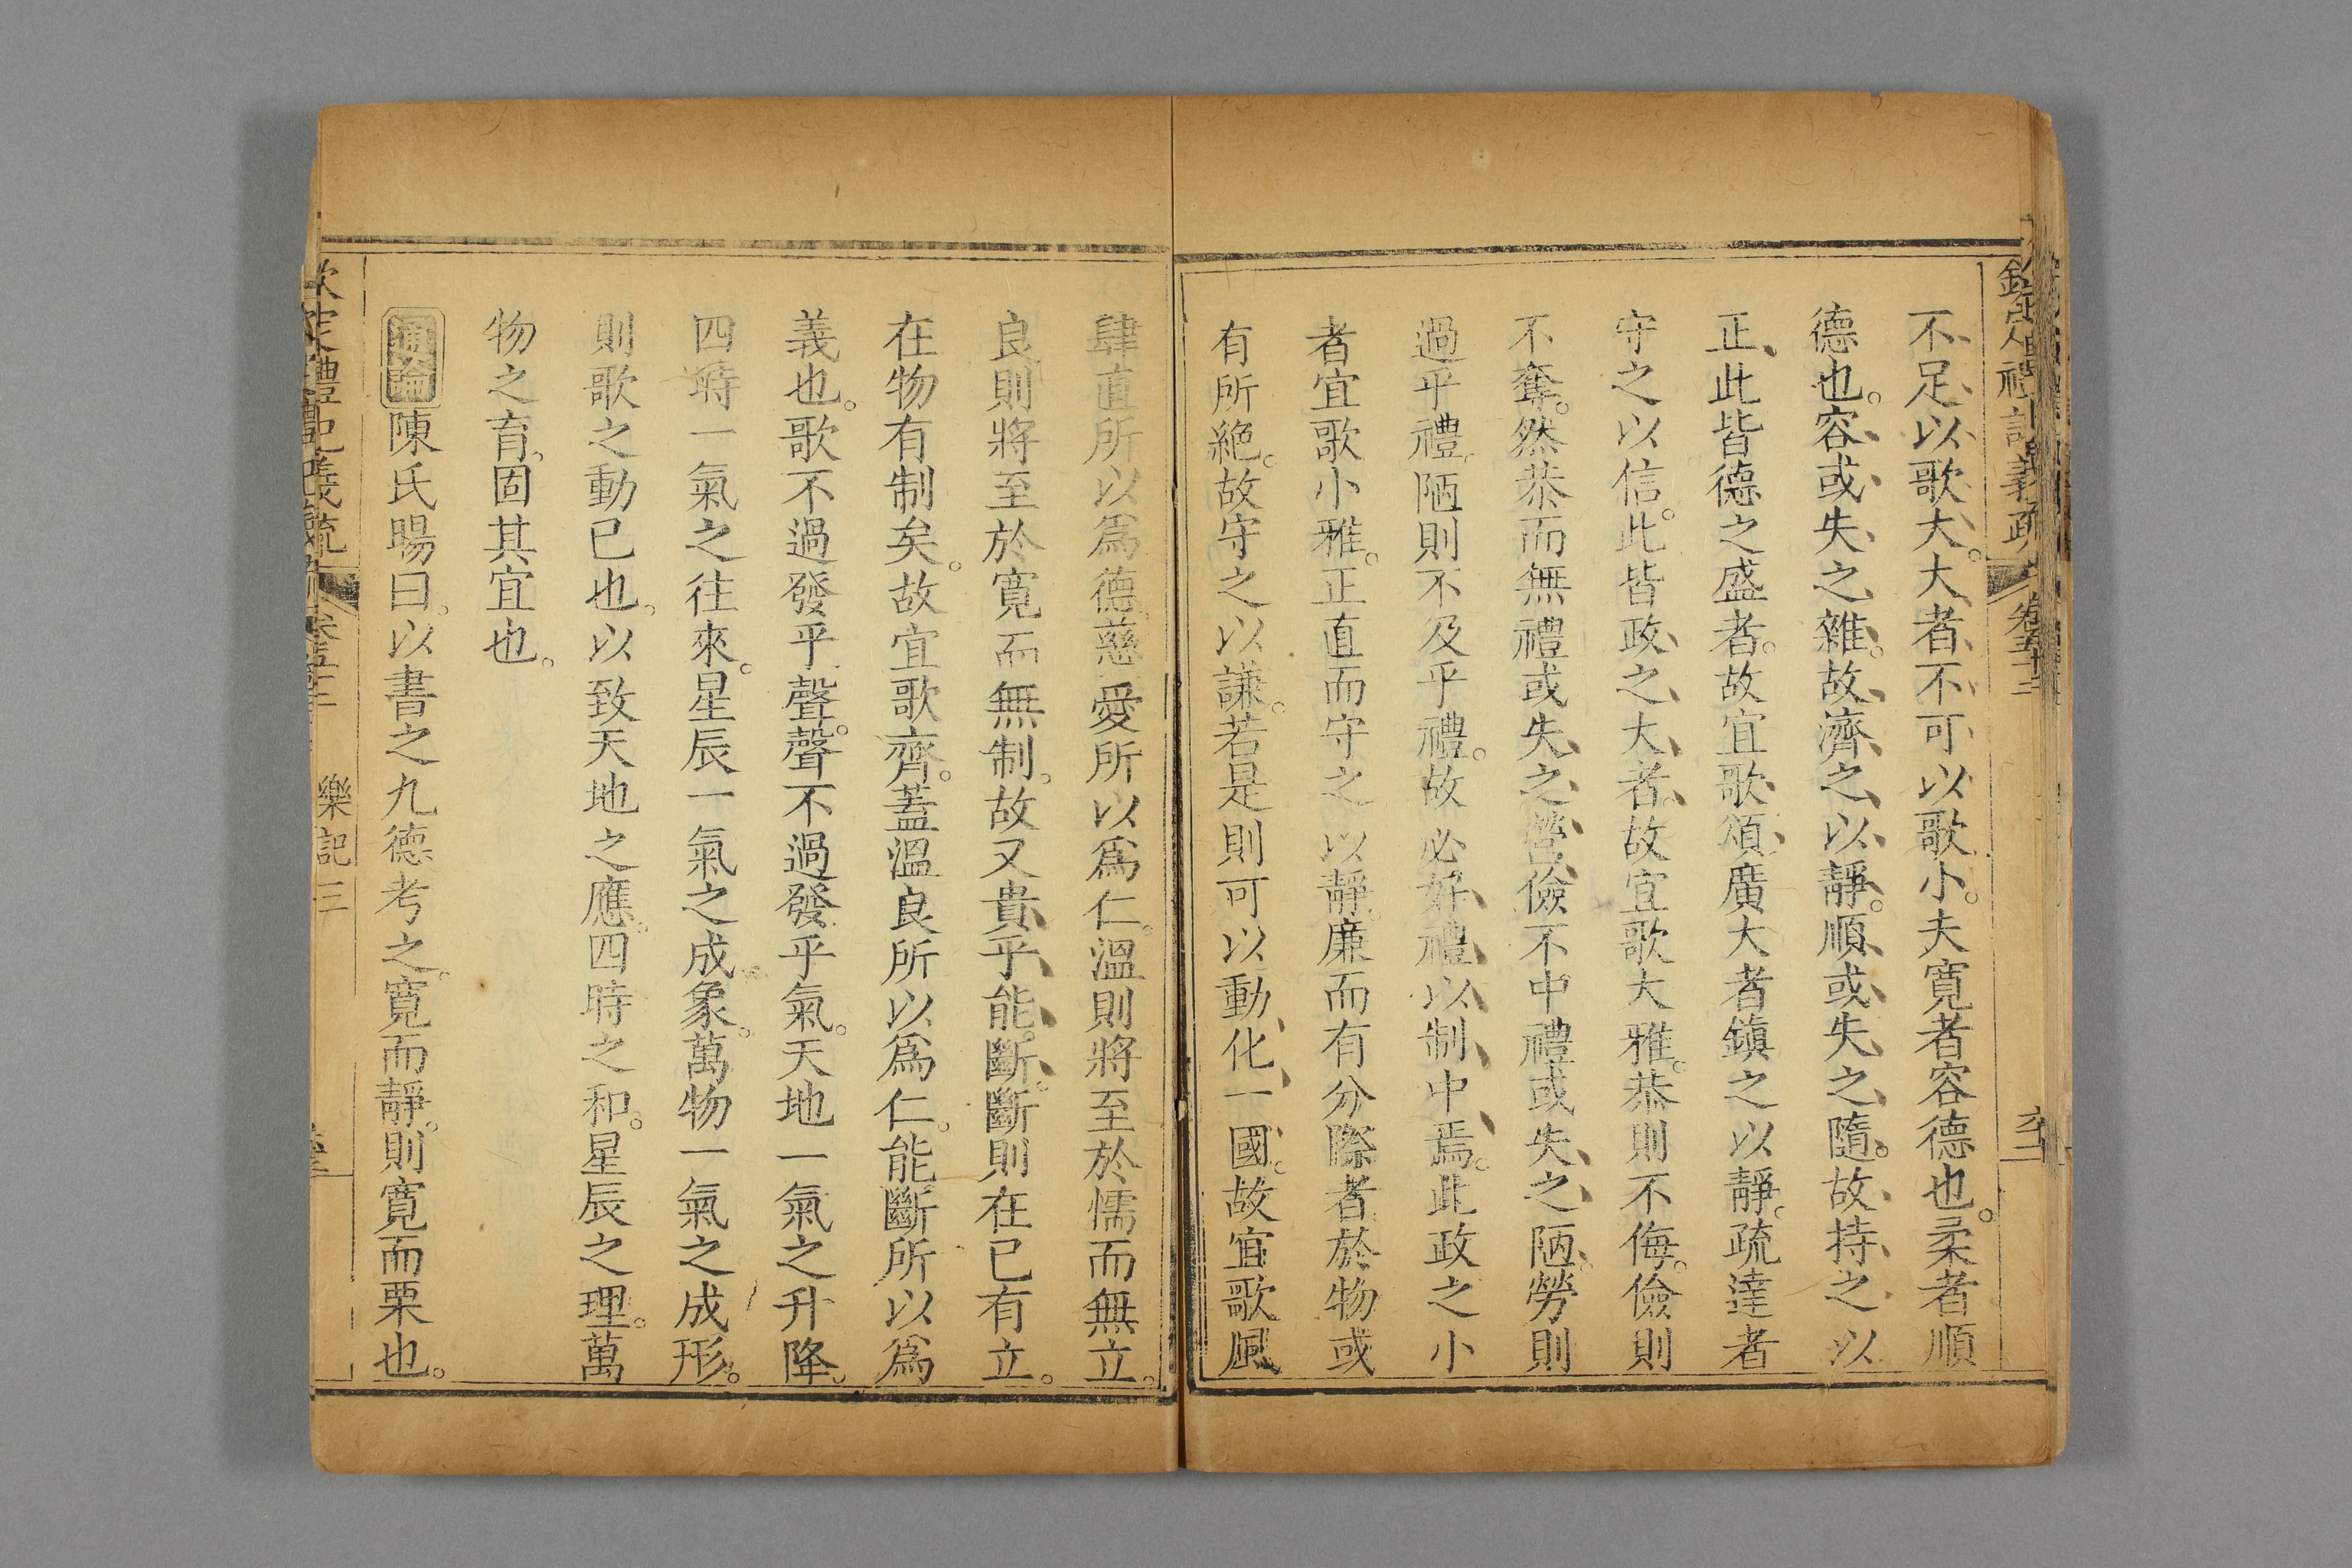 不足以歌大。大者不可以歌小。夫寛者容德也。柔者順
德也。容或失之雜。故濟之以靜。順或失之隨。故持之以
正、此皆德之盛者。故宜歌頌、廣大者鎮之以靜。疏達者
守之以信。此皆政之大者。故宜歌大雅。恭則不侮。儉則
不奪。然恭而無禮或失之勞、儉不中禮或失之陋。勞則
過乎禮。陋則不及乎禮。故必好禮以制中焉。此政之小
者宜歌小雅。正直而守之以靜。廉而有分際者於物或
有所絶。故守之以謙。若是則可以動化一國。故宜歌風
肆直所以爲德。慈愛所以爲仁。溫則將至於懦而無立。
良則將至於寛而無制。故又貴乎能斷。斷則在已有立。
在物有制矣。故宜歌齊。蓋溫良所以爲仁。能斷所以爲
義也。歌不過發乎聲。聲不過發乎氣。天地一氣之升降。
四時一氣之往來。星辰一氣之成象。萬物一氣之成形。
則歌之動已也。以致天地之應。四時之和。星辰之理。萬
物之育。固其宜也。
通論陳氏暘曰。以書之九德考之。寛而靜。則寛而栗也。
樂記三